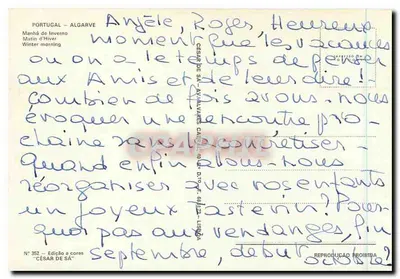 PORTUGAL - ALGARVE
Manhã de Inverno
Matin d'Hiver
Winter morning
Anjèle, Roger, Heureux
moment que les vacances
ou on a le temps de penser
aux Amis et de leur dire!
combien de fois avons-nous
évoquer une rencontre pro-
chaine sans la concrétiser-
quand enfin allons-nous
réorganiser avec vos enfants
un joyeux festin? Pour-
quoi pas aux vendanges, fin
septembre, début octobre?
Nº 352 - Edição e cores
"CÉSAR DE SÁ"
REPRODUÇÃO PROIBIDA